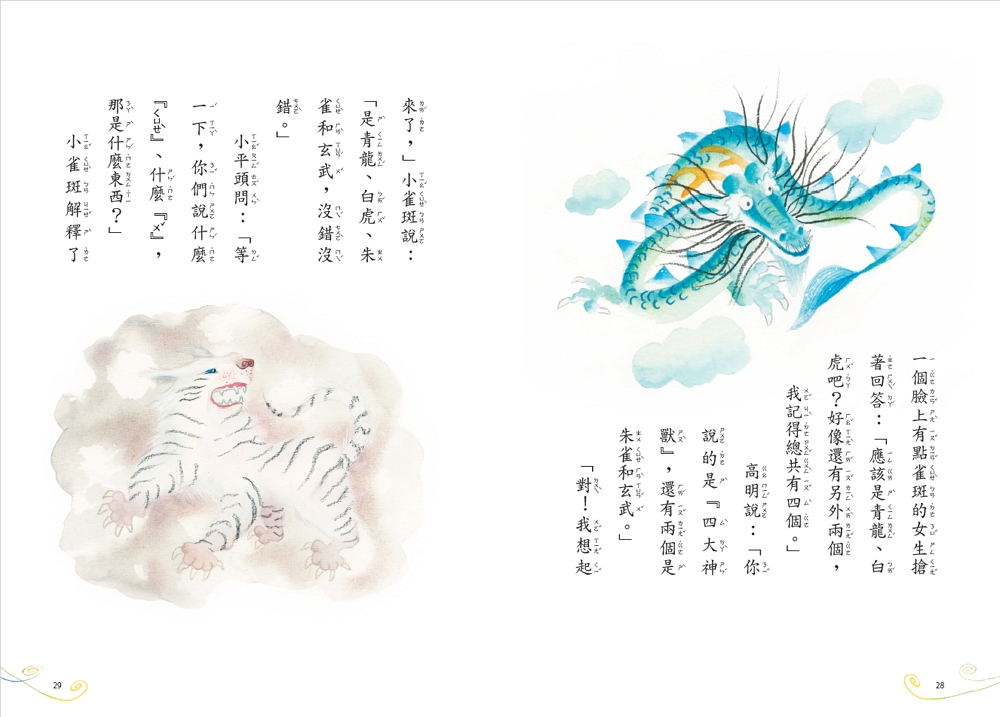 一個臉上有點雀斑的女生搶
著回答：「應該是青龍、白
虎吧？好像還有另外兩個，
我記得總共有四個。」
高明說：「你
說的是『四大神
獸』，還有兩個是
朱雀和玄武。」
「對！我想起
28
來了，」小雀斑說：
「是青龍、白虎、朱
雀和玄武，沒錯沒
錯。」
小平頭問：「等
一下，你們說什麼
『ㄑㄩㄝˋ』、什麼『ㄨˇ』，
那是什麼東西？」
小雀斑解釋了
29